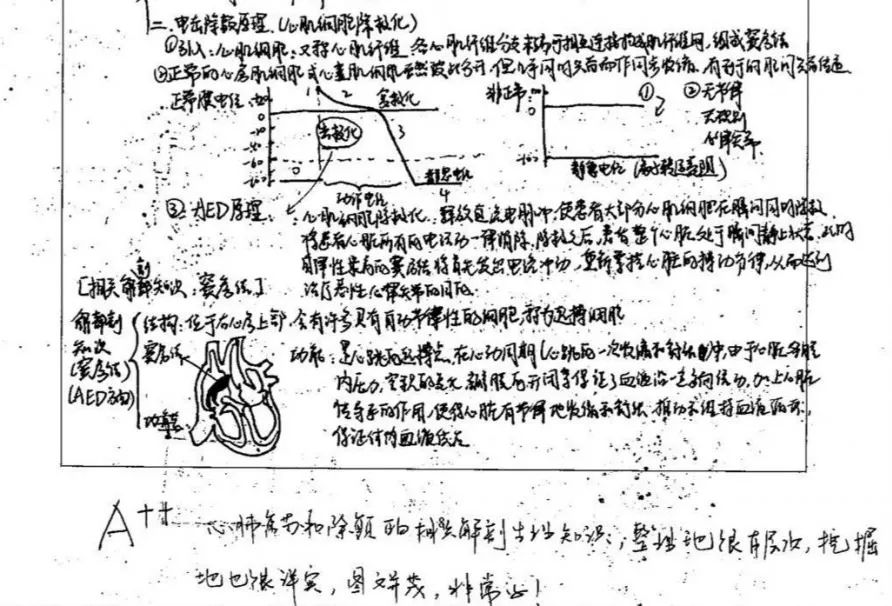 二、电击除颤原理（心肌细胞除极化）
①引入：心肌细胞：又称心肌纤维，各心肌纤维分支末端可相互连接构成肌纤维网，组成
②正常的心房肌细胞或心室肌细胞虽然彼此分开，但几乎同时兴奋而作同步收缩，有利于
正常膜电位
1
2
去极化
3
0
静息电位
4
动作电位
非正常
①
②无节律
无规则
静息电位
③AED原理：心肌细胞除极化：释放直流电脉冲，使患者大部分心肌细胞在瞬间同时除极，
将患者心脏所有的电活动一律消除，除极之后，患者整个心脏处于瞬间静止状态，此时
自律性最高的窦房结将首先发出电冲动，重新掌控心脏的搏动节律，从而达到
治疗恶性心律失常的目的。
[相关解剖知识：窦房结]
解剖剖
知识
(窦房结)
(AED方面)
结构：位于右心房上部，含有许多具有自动节律性的细胞，称为起搏细胞
窦房结
功能：是心跳的起搏点，在心动周期（心跳的一次收缩和舒张）中，由于心脏各腔
内压力、容积的变化，瓣膜的开闭等保证了血液沿一定方向流动，加上心脏
传导系的作用，使得心脏有节律地收缩和舒张，推动和维持血液循环，
保证体内血液供应
A++ 心肺复苏和除颤的相关解剖生理知识，整理地很有层次，挖掘
地也很详实，图文并茂，非常